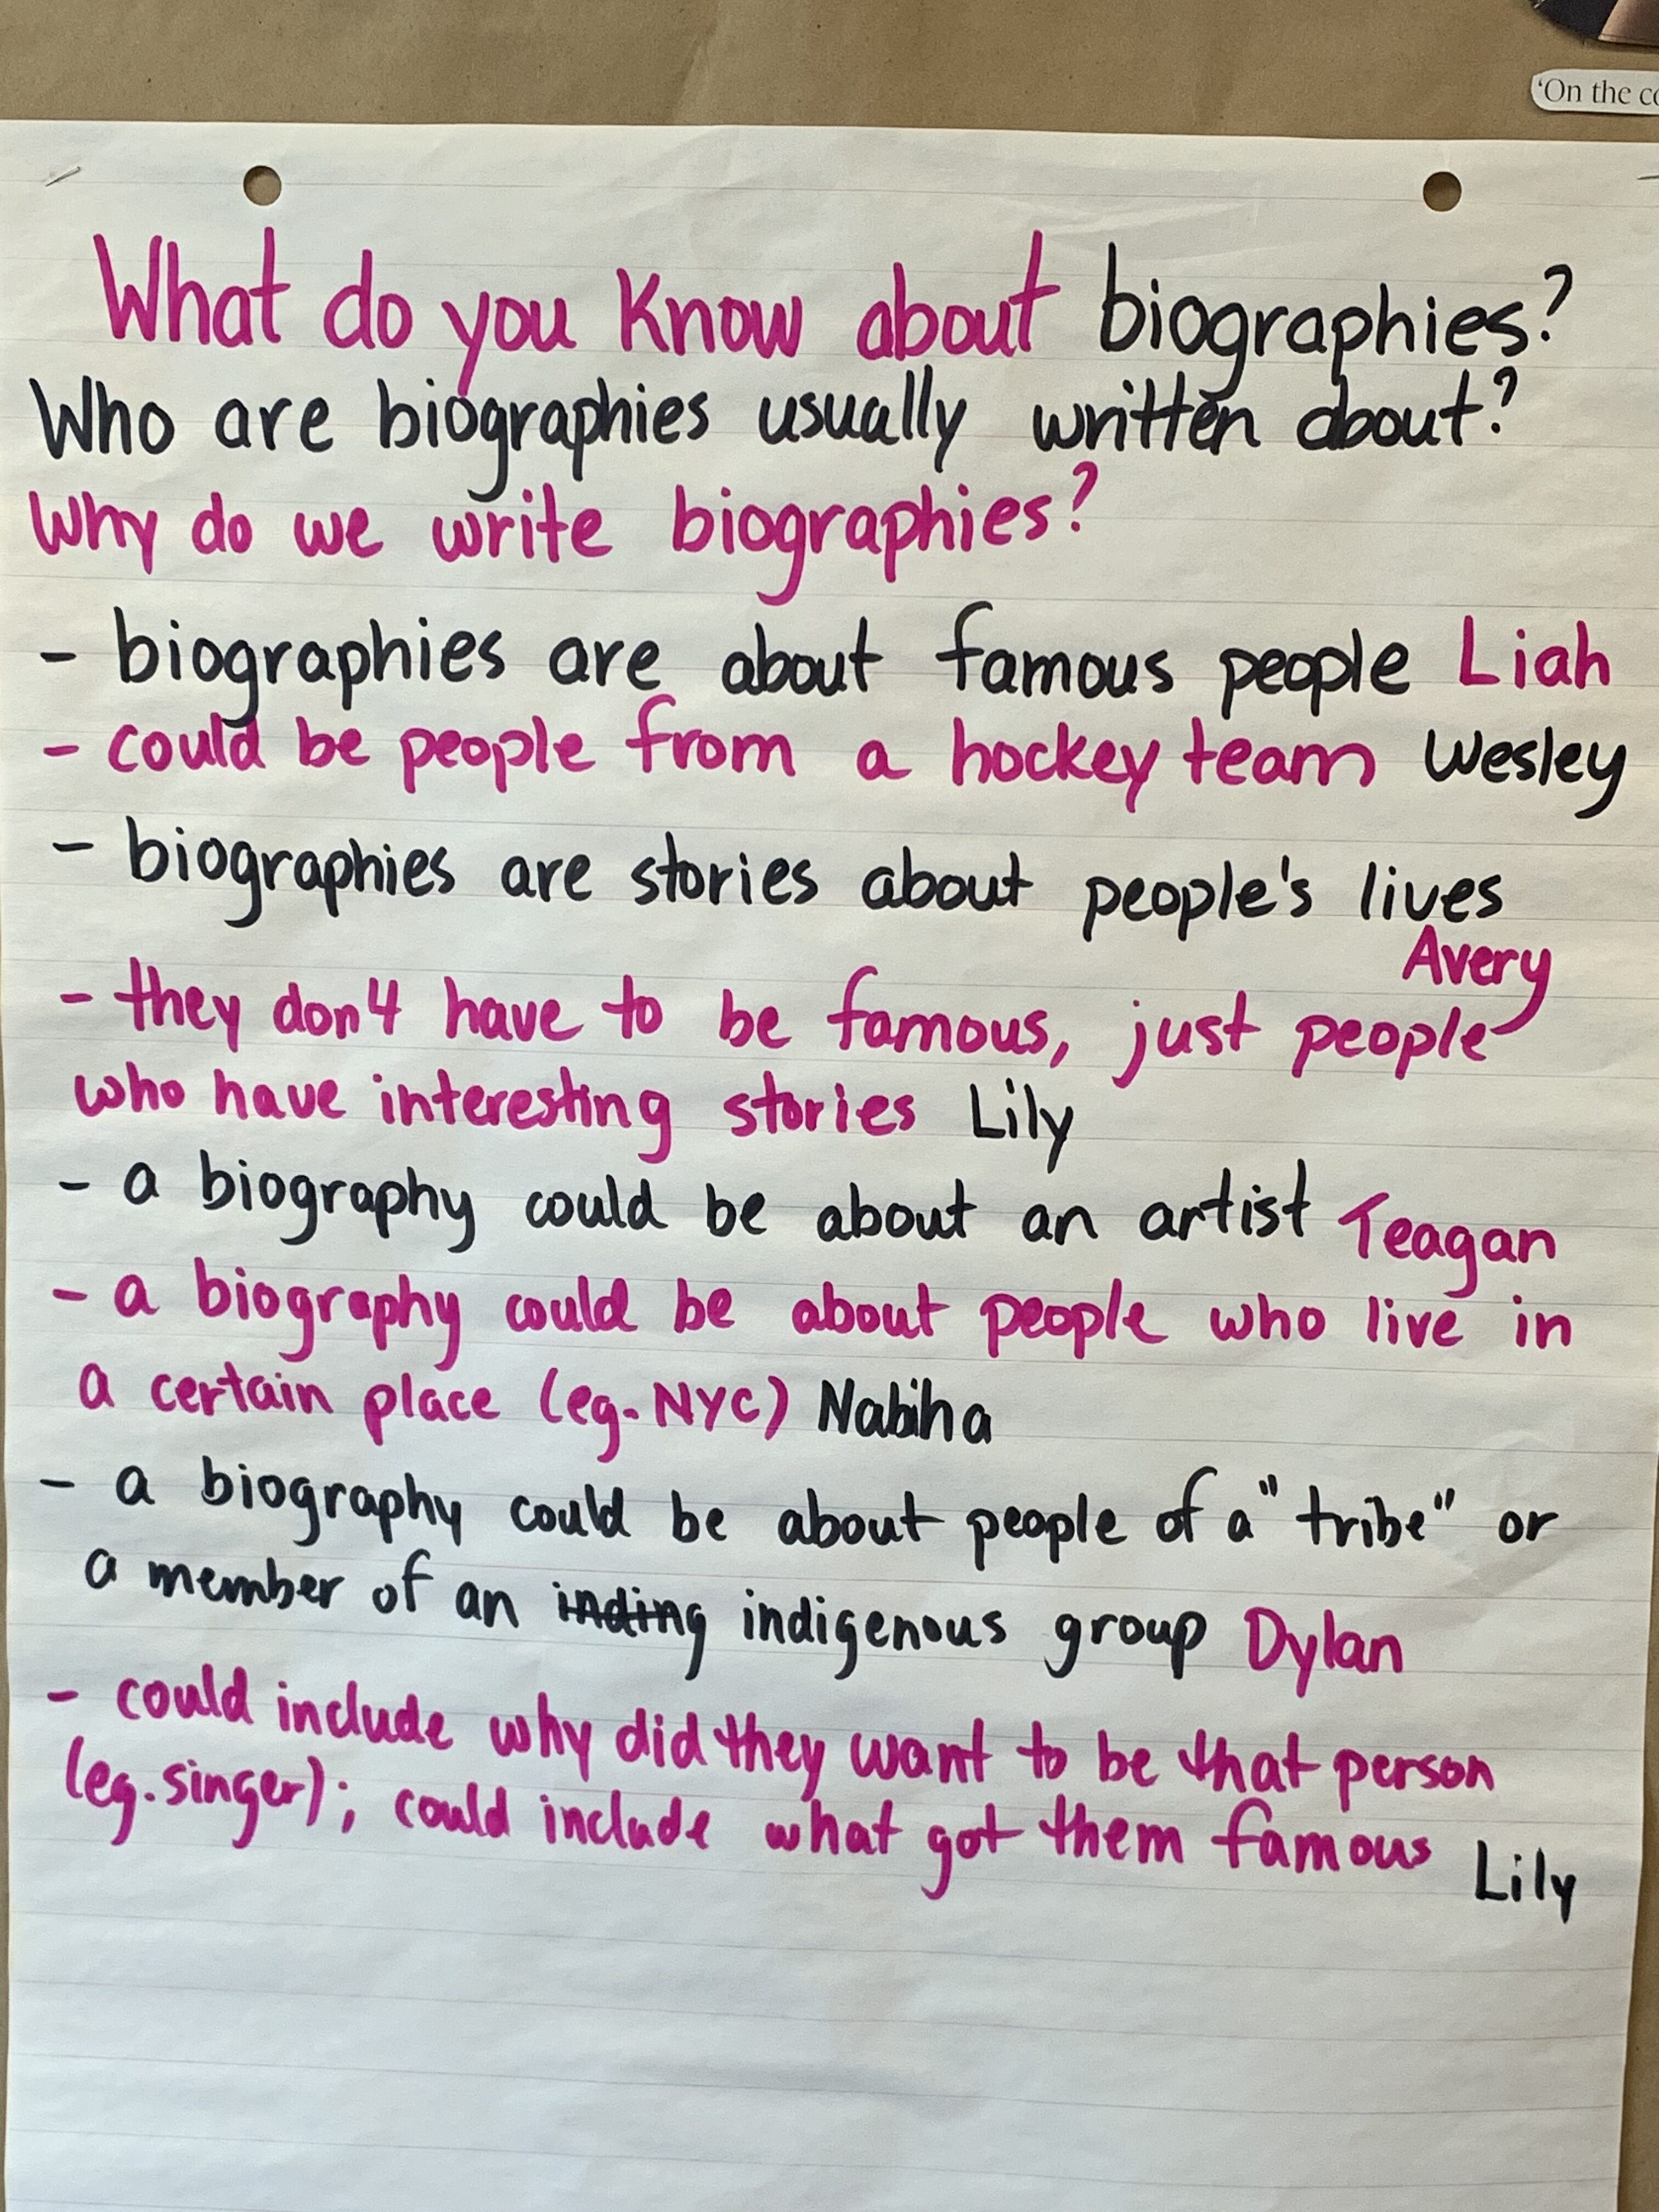 'On the
What do you know about biographies?
Who are biographies usually written about?
Why do we write biographies?
- biographies are about famous people Liah
- could be people from a hockey team Wesley
- biographies are stories about people's lives
Avery
- they don't have to be famous, just people
who have interesting stories Lily
- a biography could be about an artist Teagan
- a biography could be about people who live in
a certain place (eg. NYC) Nabiha
- a biography could be about people of a "tribe" or
a member of an inding indigenous group Dylan
- could include why did they want to be that person
(eg. singer); could include what got them famous
Lily